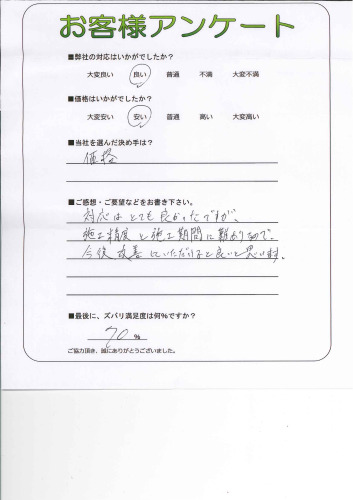 お客様アンケート
■弊社の対応はいかがでしたか？
大変良い 良い 普通 不満 大変不満
■価格はいかがでしたか？
大変安い 安い 普通 高い 大変高い
■当社を選んだ決め手は？
価格
■ご感想・ご要望などをお書き下さい。
対応はとても良かったですが、
施工精度と施工期間に難がありなので、
今後改善していただけると良いと思います。
■最後に、ズバリ満足度は何%ですか？
70 %
ご協力頂き、誠にありがとうございました。